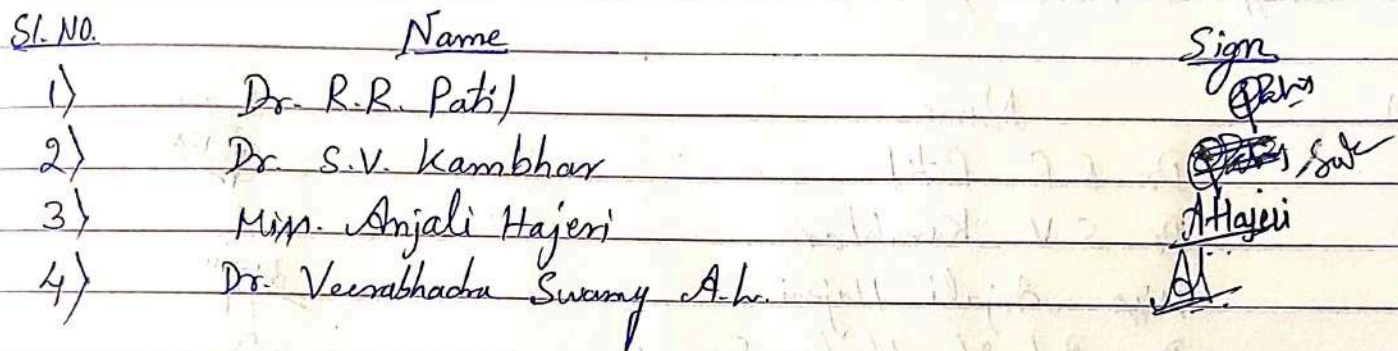 Sl. No. Name Sign
1) Dr. R.R. Patil
2) Dr. S.V. Kambhar
3) Miss. Anjali Hajeri AHajeri
4) Dr. Veerabhadra Swamy A.L.